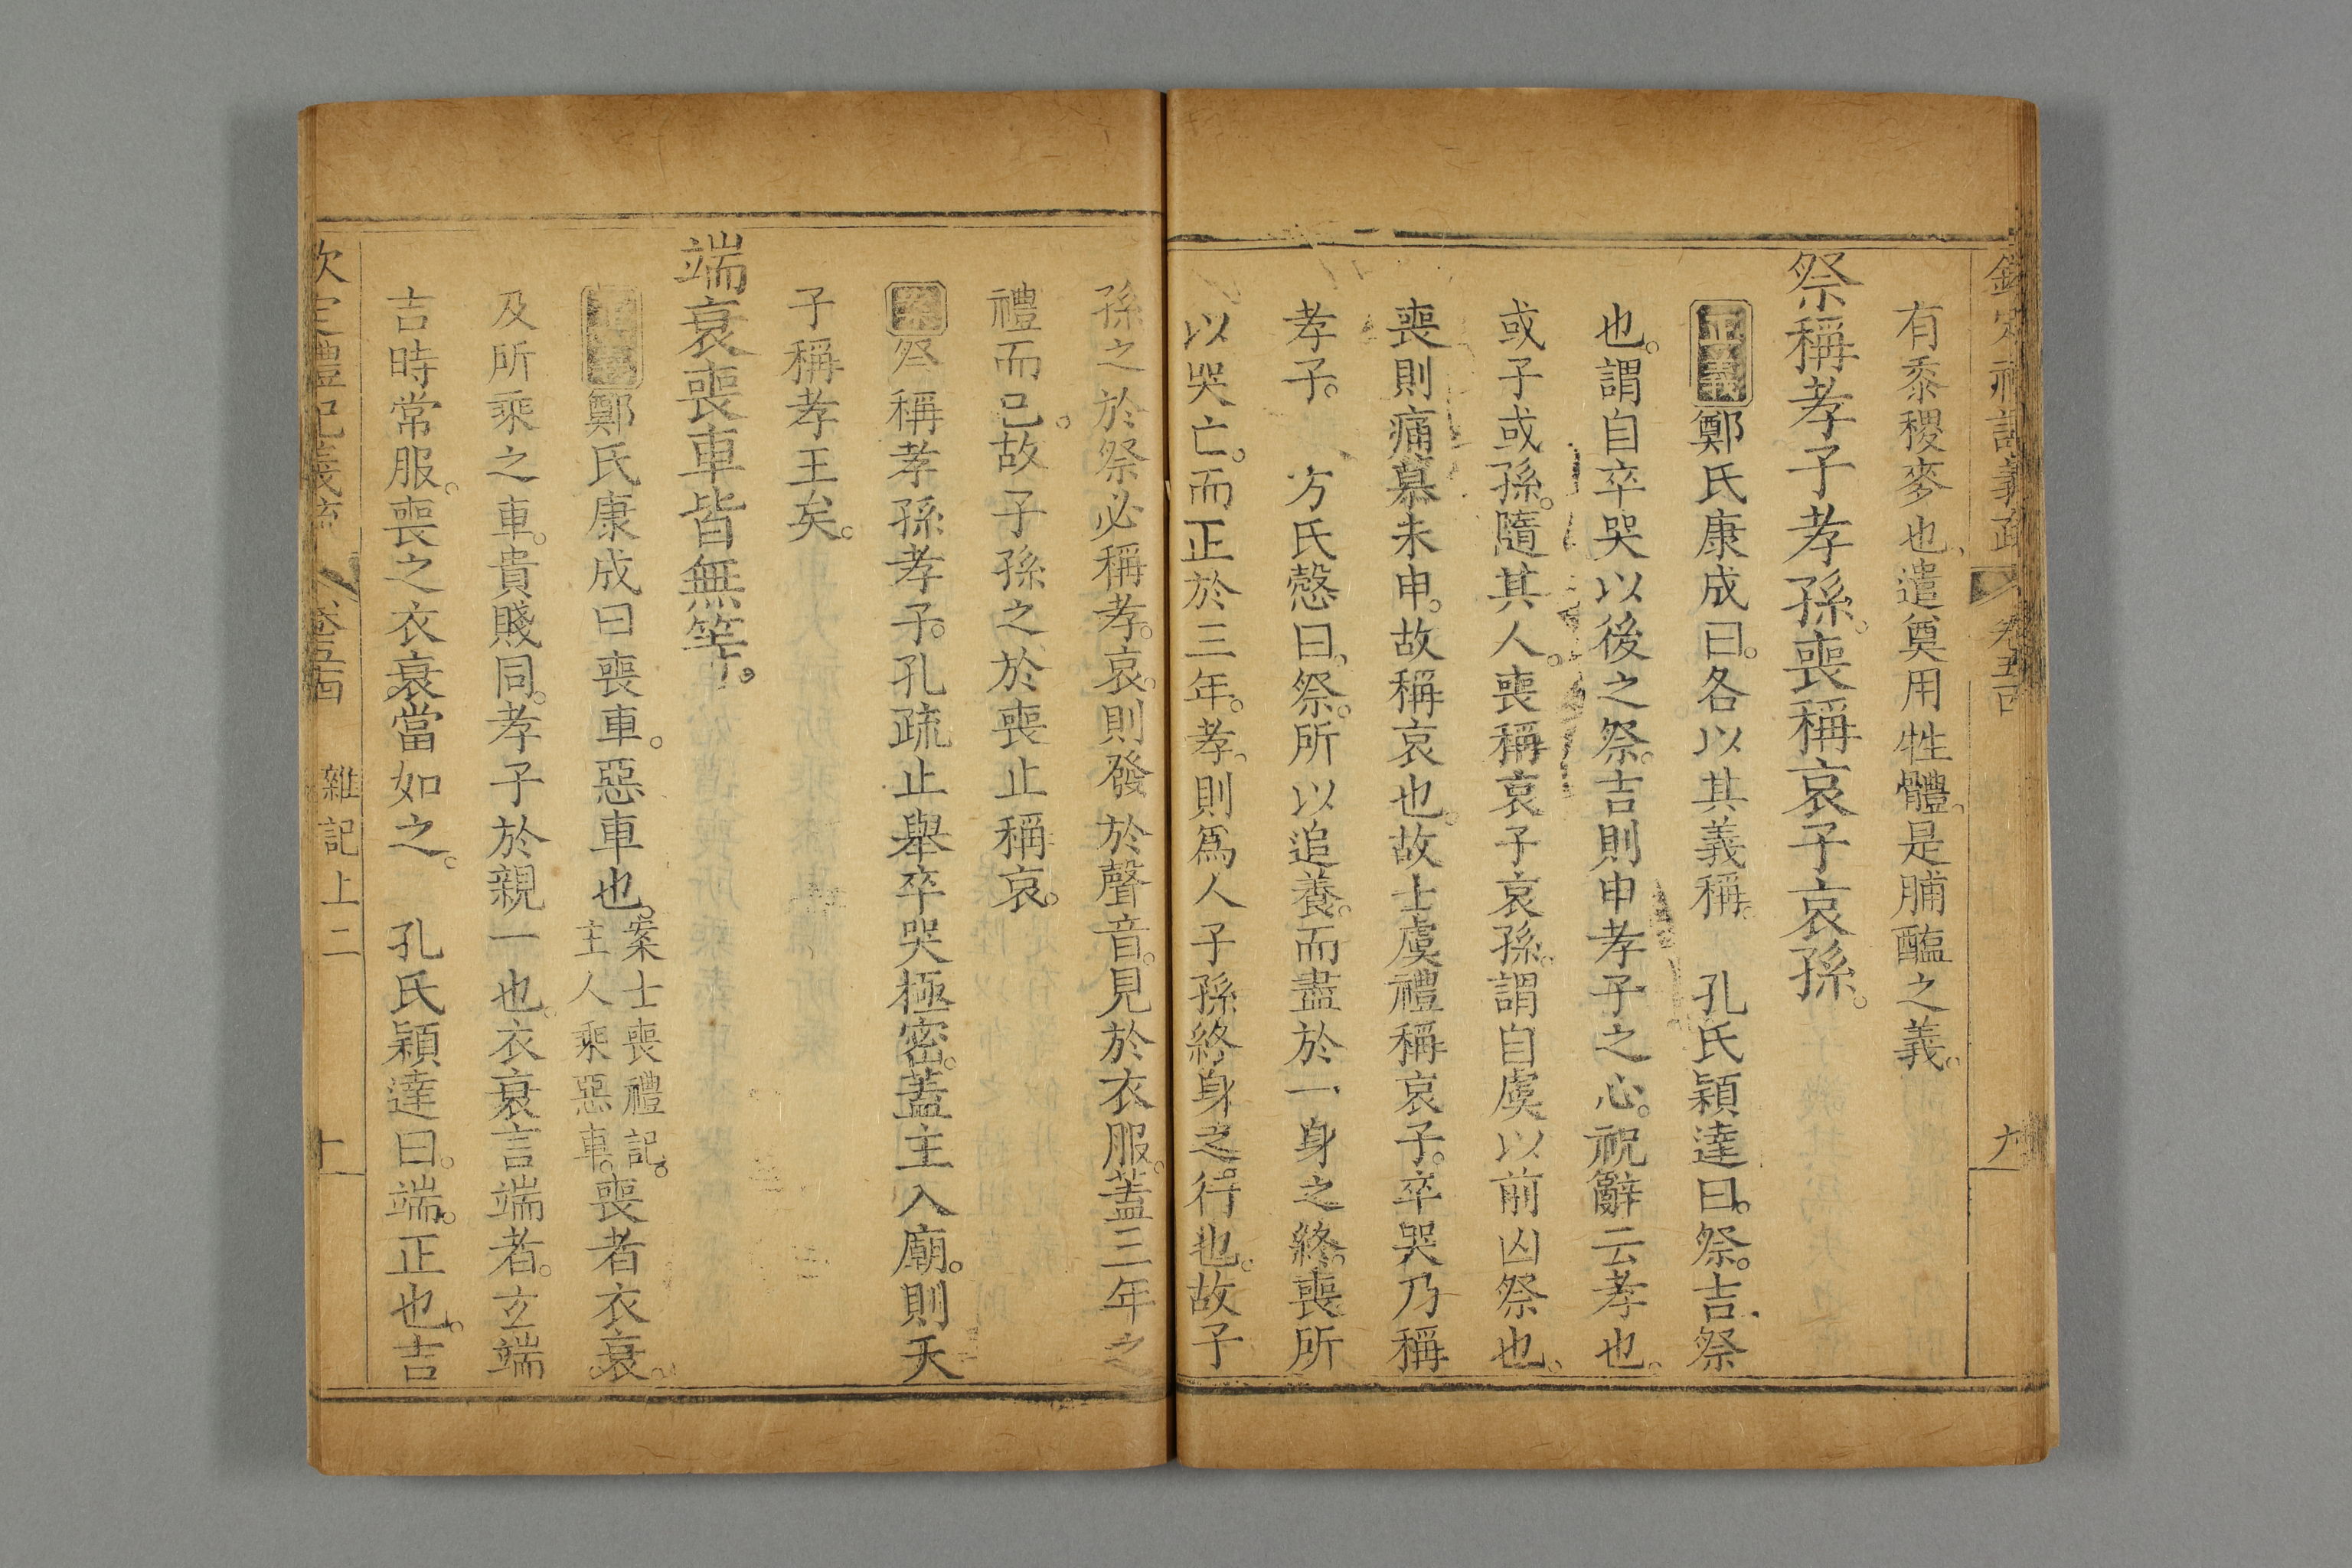 有黍稷麥也遣奠用牲體是脯醢之義
祭稱孝子孝孫喪稱哀子哀孫
正義鄭氏康成曰各以其義稱 孔氏穎達曰祭吉祭
也謂自卒哭以後之祭吉則申孝子之心祝辭云孝也
或子或孫隨其人喪稱哀子哀孫謂自虞以前凶祭也
喪則痛慕未申故稱哀也故士虞禮稱哀子卒哭乃稱
孝子 方氏慤曰祭所以追養而盡於一身之終喪所
以哭亡而正於三年孝則爲人子孫終身之行也故子
孫之於祭必稱孝哀則發於聲音見於衣服蓋三年之
禮而已故子孫之於喪止稱哀
案祭稱孝孫孝子孔疏止舉卒哭極密蓋主入廟則天
子稱孝王矣
端衰喪車皆無等
正義鄭氏康成曰喪車惡車也案士喪禮記主人乘惡車喪者衣衰
及所乘之車貴賤同孝子於親一也衣衰言端者玄端
吉時常服喪之衣衰當如之 孔氏穎達曰端正也吉
雜記上二
十